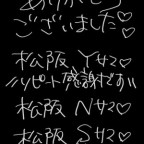 ありがとう
ございました♡
松阪 Yサマ♡
//リピート感謝です//
松阪 Nサマ♡
松阪 Sサマ♡